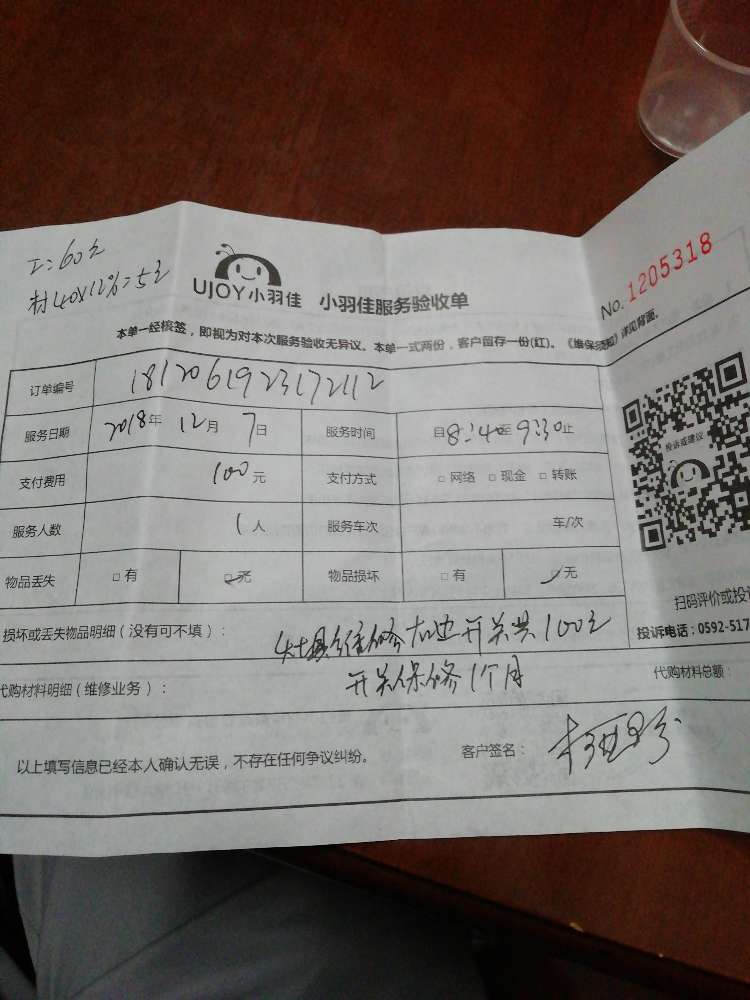 工=60元
材40×12%=5元
UJOY小羽佳 小羽佳服务验收单
No. 1205318
本单一经核签，即视为对本次服务验收无异议。本单一式两份，客户留存一份(红)。《维保须知》详见背面。
订单编号 1812061923172112
服务日期 2018年 12月 7日 服务时间 自8:40至9:30止
支付费用 100元 支付方式 □ 网络 □ 现金 □ 转账
投诉或建议
服务人数 1人 服务车次 车/次
物品丢失 □ 有 □ 无 物品损坏 □ 有 □ 无
扫码评价或投诉
损坏或丢失物品明细（没有可不填）： 灶具维修右边开关共100元
投诉电话：0592-517
代购材料明细（维修业务）： 开关保修1个月 代购材料总额：
以上填写信息已经本人确认无误，不存在任何争议纠纷。 客户签名：